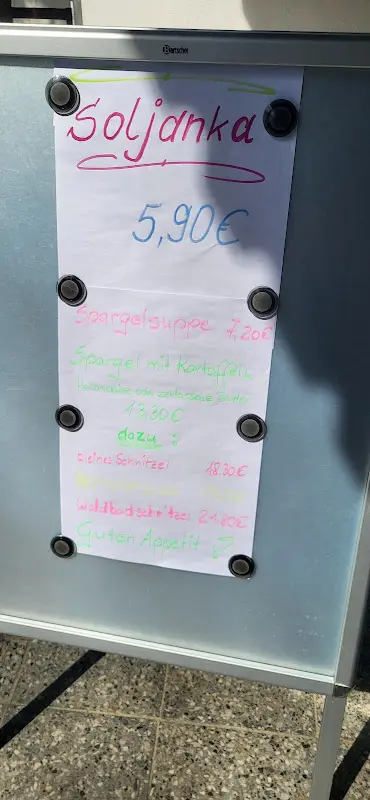 Bartscher
Soljanka
5,90€
Spargelsuppe 7,20€
Spargel mit Kartoffeln
Hollandaise oder zerlassene Butter
13,30€
dazu :
kleines Schnitzel 18.30€
Waldbad schnitzel 21,80€
Guten Appetit